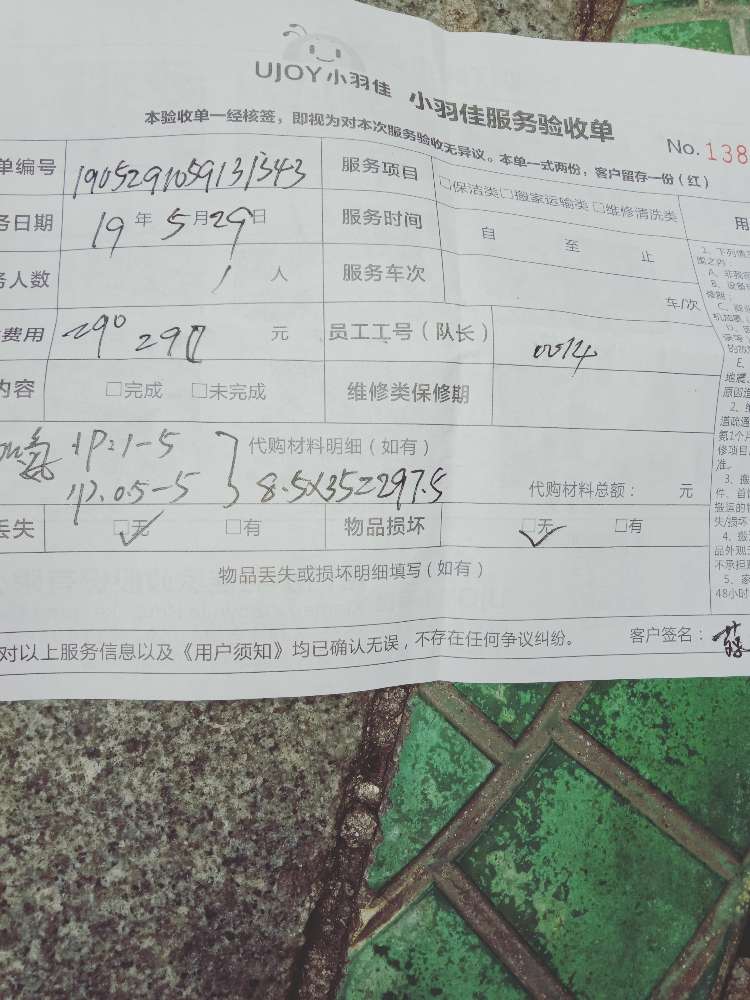 UJOY小羽佳 小羽佳服务验收单
本验收单一经核签，即视为对本次服务验收无异议。本单一式两份，客户留存一份（红）
No. 138
单编号 1905291059131343 服务项目 □保洁类□搬家运输类 □维修清洗类
务日期 19 年 5 月 29 日 服务时间 自 至 止
务人数 1 人 服务车次 车/次
费用 290 297 元 员工工号（队长） 0014
内容 □完成 □未完成 维修类保修期
加氟 1P:1-5 代购材料明细（如有）
1P.0.5-5 8.5X35=297.5 代购材料总额： 元
丢失 □无 □有 物品损坏 □无 □有
物品丢失或损坏明细填写（如有）
对以上服务信息以及《用户须知》均已确认无误，不存在任何争议纠纷。 客户签名：
用
1、下列情
A、非我司
B、设备
E、
地震、
原因造
道疏通
第1个月
修项目
准。
3、搬
件、首
搬运的
失/损坏
4、搬
品外观
不承担
5、家
48小时